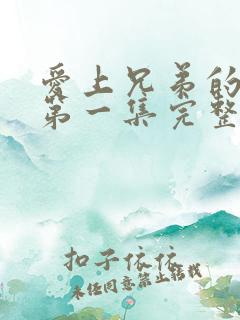 愛上兄弟的
第一集完整
扣子依依
未经同意禁止转载